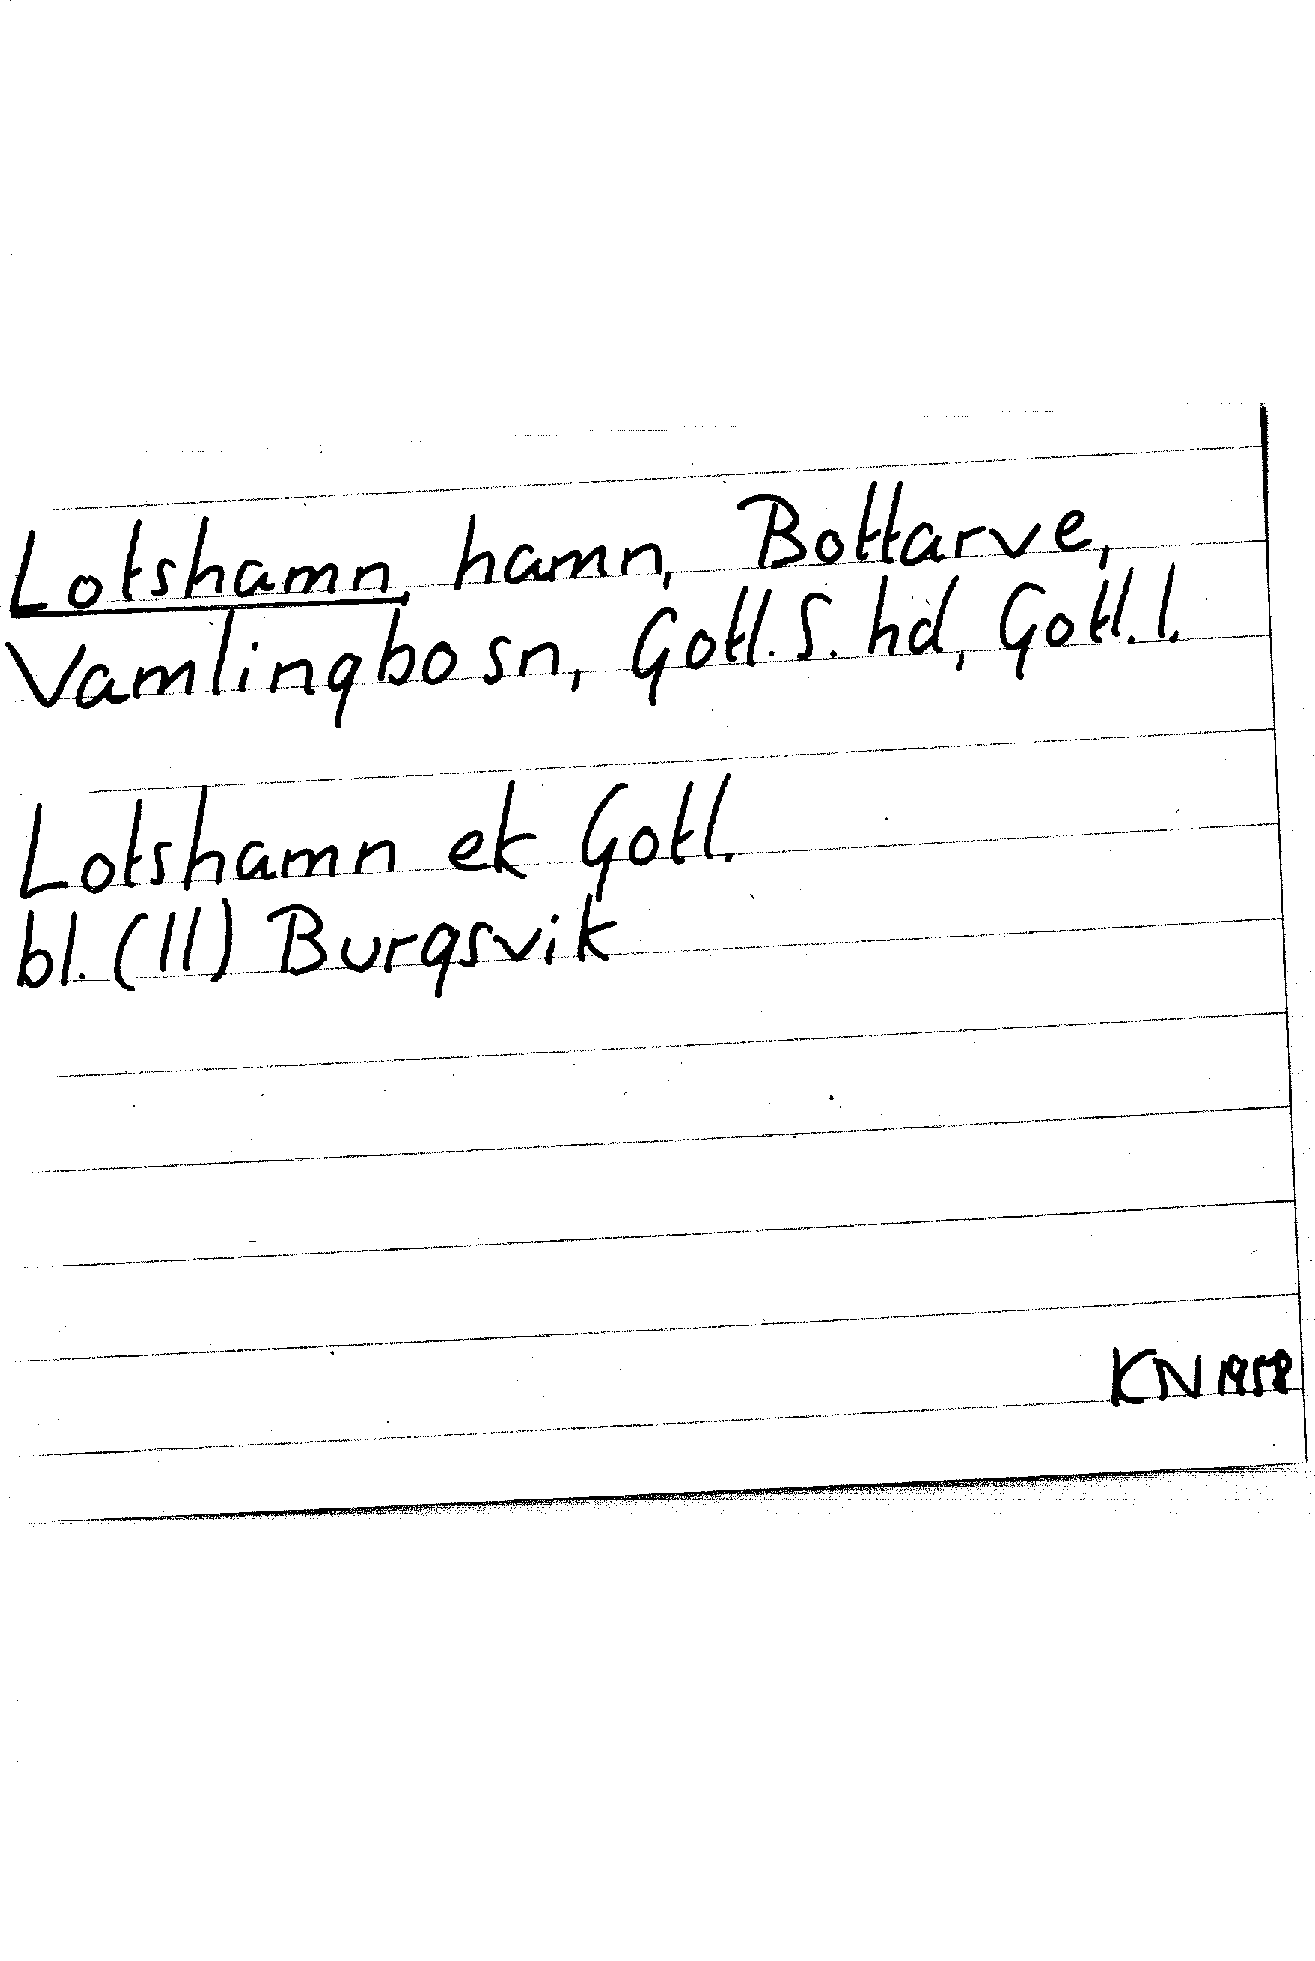 Lotshamn, hamn, Bottarve,
Vamlingbo sn, Gotl. S. hd, Gotl. l.
Lotshamn ek Gotl.
bl. (11) Burgsvik
KN 1958